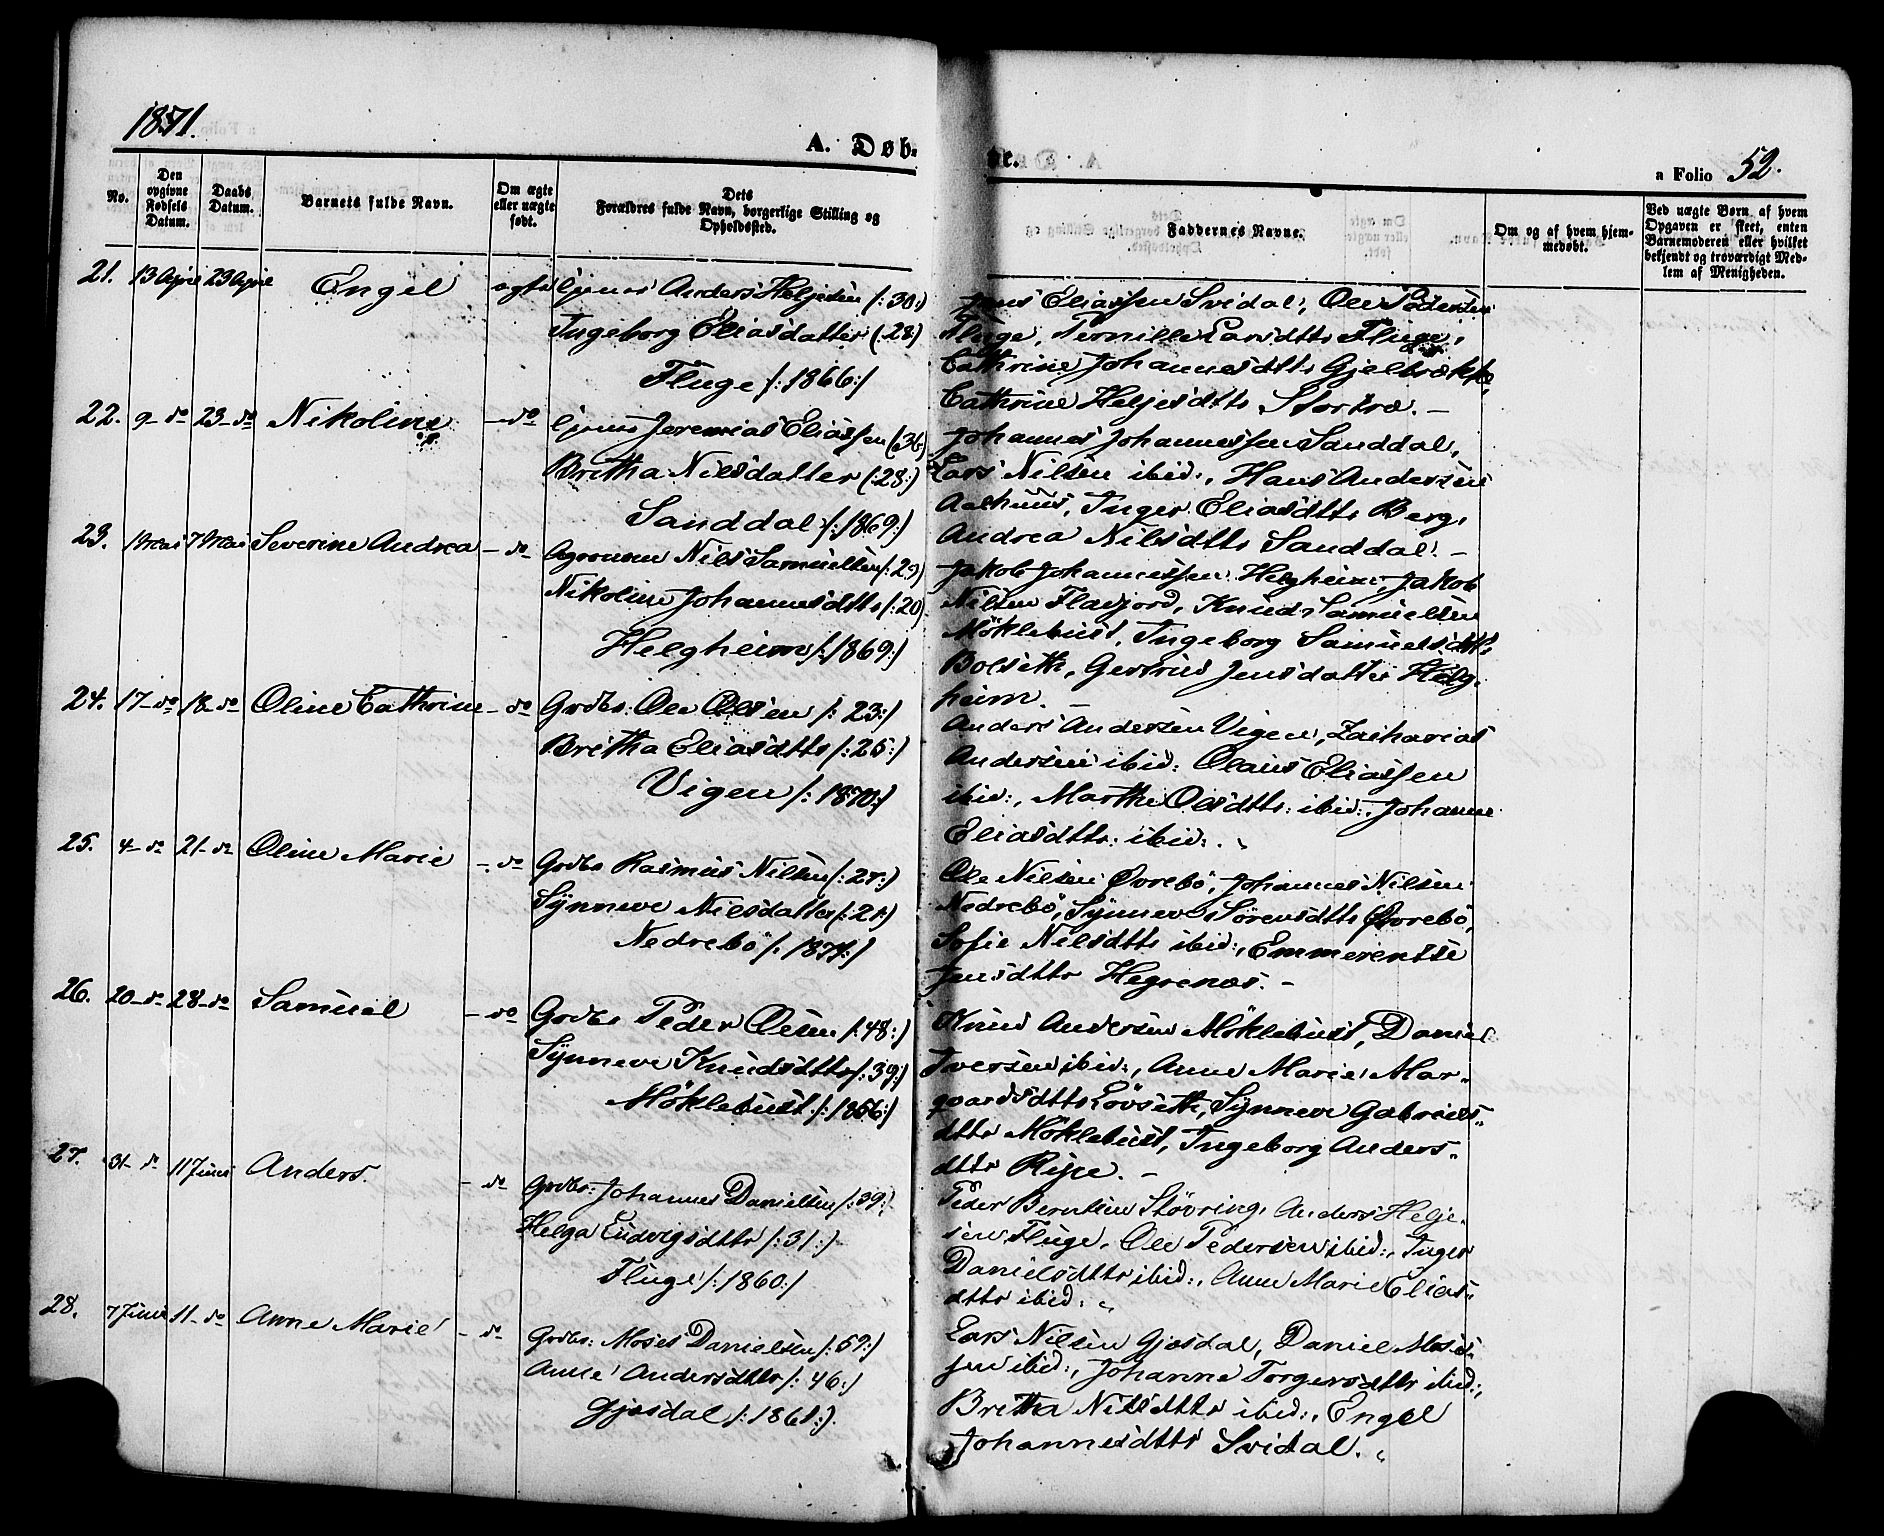 1871.
A. Døb-
te.
a Folio 52.
No.
Den opgivne Fødsels Datum.
Daabs Datum.
Barnets fulde Navn.
Om ægte eller uægte født.
Dets Forældres fulde Navn, borgerlige Stilling og Opholdssted.
Faddernes Navne.
Om og af hvem hjemmedøbt.
Ved uægte Børn af hvem Opgaven er skeet, enten Barnemoderen eller hvilket bekjendt og troværdigt Medlem af Menigheden.
21. 13 April 23 April Engel ægte Anders Heljesen /:30:/
Ingeborg Eliasdatter /:28:/
Fluge /:1866:/
Jens Eliassen Svidal, Ole Pedersen
Fluge, Pernille Larsdttr Fluge,
Cathrine Johannesdttr Gjelbrække,
Cathrine Heljesdttr Stortræ. –
22. 9 – do 23 – do Nikoline – do Jeremias Eliassen /:36:/
Britha Nilsdatter /:28:/
Sanddal /:1869:/
Johannes Johannessen Sanddal,
Lars Nilsen ibid:, Hans Andersen
Aalhuus, Inger Eliasdttr Berg,
Andrea Nilsdttr Sanddal. –
23. 1 Mai 7 Mai Severine Andrea – do Agronom Nils Samuelsen /:29:/
Nikoline Johannesdttr /:20:/
Helgheim /:1869:/
Jakob Johannessen Helgheim, Jakob
Nilsen Flaxjord, Knud Samuelsen
Møklebust, Ingeborg Samuelsdttr
Bolsæth, Gertrud Jensdatter Helg-
heim. –
24. 17 – do 18 – do Oline Cathrine – do Grdbr: Ole Olsen /:23:/
Britha Eliasdttr /:25:/
Vigen /:1870:/
Anders Andersen Vigen, Zacharias
Andersen ibid: Olaus Eliassen
ibid:, Marthe Olsdttr: ibid:, Johanne
Eliasdttr: ibid:.
25. 4 – do 21 – do Oline Marie – do Grdbr Rasmus Nilsen /:27:/
Synneve Nilsdatter /:21:/
Nedrebö /:1871:/
Ole Nilsen Øvrebö, Johannes Nilsen
Nedrebö, Synneve Sörensdttr Øvrebö,
Sofie Nilsdttr ibid:, Emmerentse
Jensdttr Hegrenæs. –
26. 20 – do 28 – do Samuel – do Grdbr Peder Olsen /:48:/
Synneve Knudsdttr /:39:/
Möklebust /:1856:/
Knud Andersen Möklebust, Daniel
Iversen ibid:, Anne Marie Mar-
qvardsdttr Lövseth, Synneve Gabriels-
dttr Möklebust, Ingeborg Anders-
dttr Ripe. –
27. 31 – do 11 Juni Anders. – do Grdbr: Johannes Danielsen /:39:/
Helga Ludvigsdttr /:31:/
Fluge /:1860:/
Peder Berntsen Stövring, Anders Helje-
sen Fluge, Ole Pedersen ibid:, Inger
Danielsdttr ibid:, Anne Marie Elias-
dttr ibid:
28. 7 Juni 11 – do Anne Marie – do Grdbr: Moses Danielsen /:59:/
Anne Andersdttr /:46:/
Gjesdal /:1861:/.
Lars Nilsen Gjesdal, Daniel Moses-
sen ibid:, Johanne Torgersdttr ibid:,
Britha Nilsdttr ibid:, Engel
Johannesdttr Svidal.